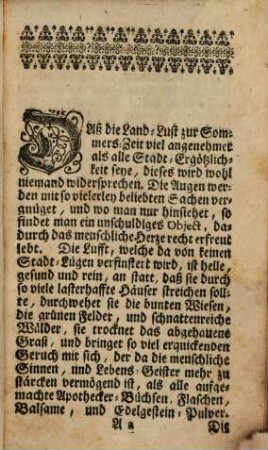 Daß die Land-Lust zur Som-
mers-Zeit viel angenehmer
als alle Stadt-Ergötzlich-
keit seye, dieses wird wohl
niemand widersprechen. Die Augen wer-
den mit so vielerley beliebten Sachen ver-
gnüget, und wo man nur hinsiehet, so
findet man ein unschuldiges Object, da-
durch das menschliche Herze recht erfreut
lebt. Die Lufft, welche da von keinen
Stadt-Lügen verfinstert wird, ist helle,
gesund und rein, an statt, daß sie durch
so viele lasterhaffte Häuser streichen soll-
te, durchwehet sie die bunten Wiesen,
die grünen Felder, und schnattenreiche
Wälder, sie trocknet das abgehauene
Graß, und bringet so viel erquickenden
Geruch mit sich, der da die menschliche
Sinnen, und Lebens-Geister mehr zu
stärcken vermögend ist, als alle aufge-
machte Apothecker-Büchsen, Flaschen,
Balsame, und Edelgestein-Pulver.
A 2 Die